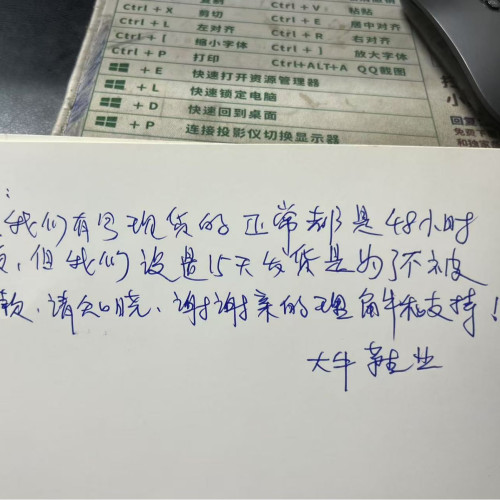 Ctrl+V: 粘贴
Ctrl+X 剪切 Ctrl+E 居中对齐
Ctrl+L 左对齐 Ctrl+R 右对齐
Ctrl+[ 缩小字体 Ctrl+] 放大字体
Ctrl+P 打印 Ctrl+ALT+A QQ截图
+E 快速打开资源管理器
+L 快速锁定电脑
+D 快速回到桌面
+P 连接投影仪切换显示器
小
回复
免费
:
我们有号现货的正常都是48小时
,但我们设置15天发货是为了不被
款、请知晓、谢谢亲的理解和支持!
大牛鞋业